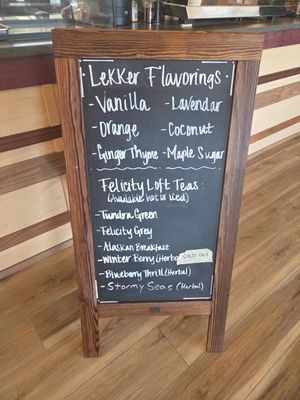 Lekker Flavorings
-Vanilla -Lavendar
-Orange -Coconut
-Ginger Thyme -Maple Sugar
Felicity Loft Teas:
(Available hot or iced)
-Tundra Green
-Felicity Grey
-Alaskan Breakfast
-Winter Berry (Herba
SOLD OUT
-Blueberry Thrill (Herbal)
-Stormy Seas (Herbal)